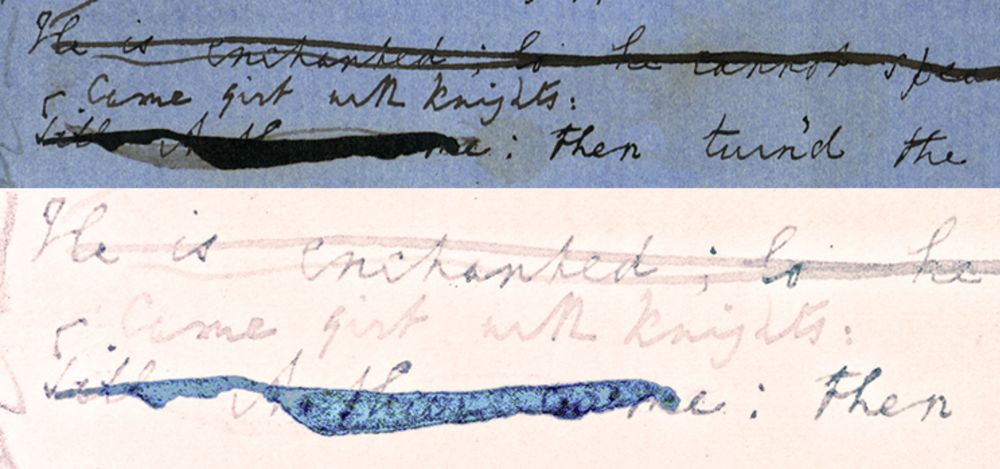 He is enchanted; lo he cannot spea
Came girt with knights:
me: then turn'd the
He is enchanted; lo he
Came girt with knights:
me: then